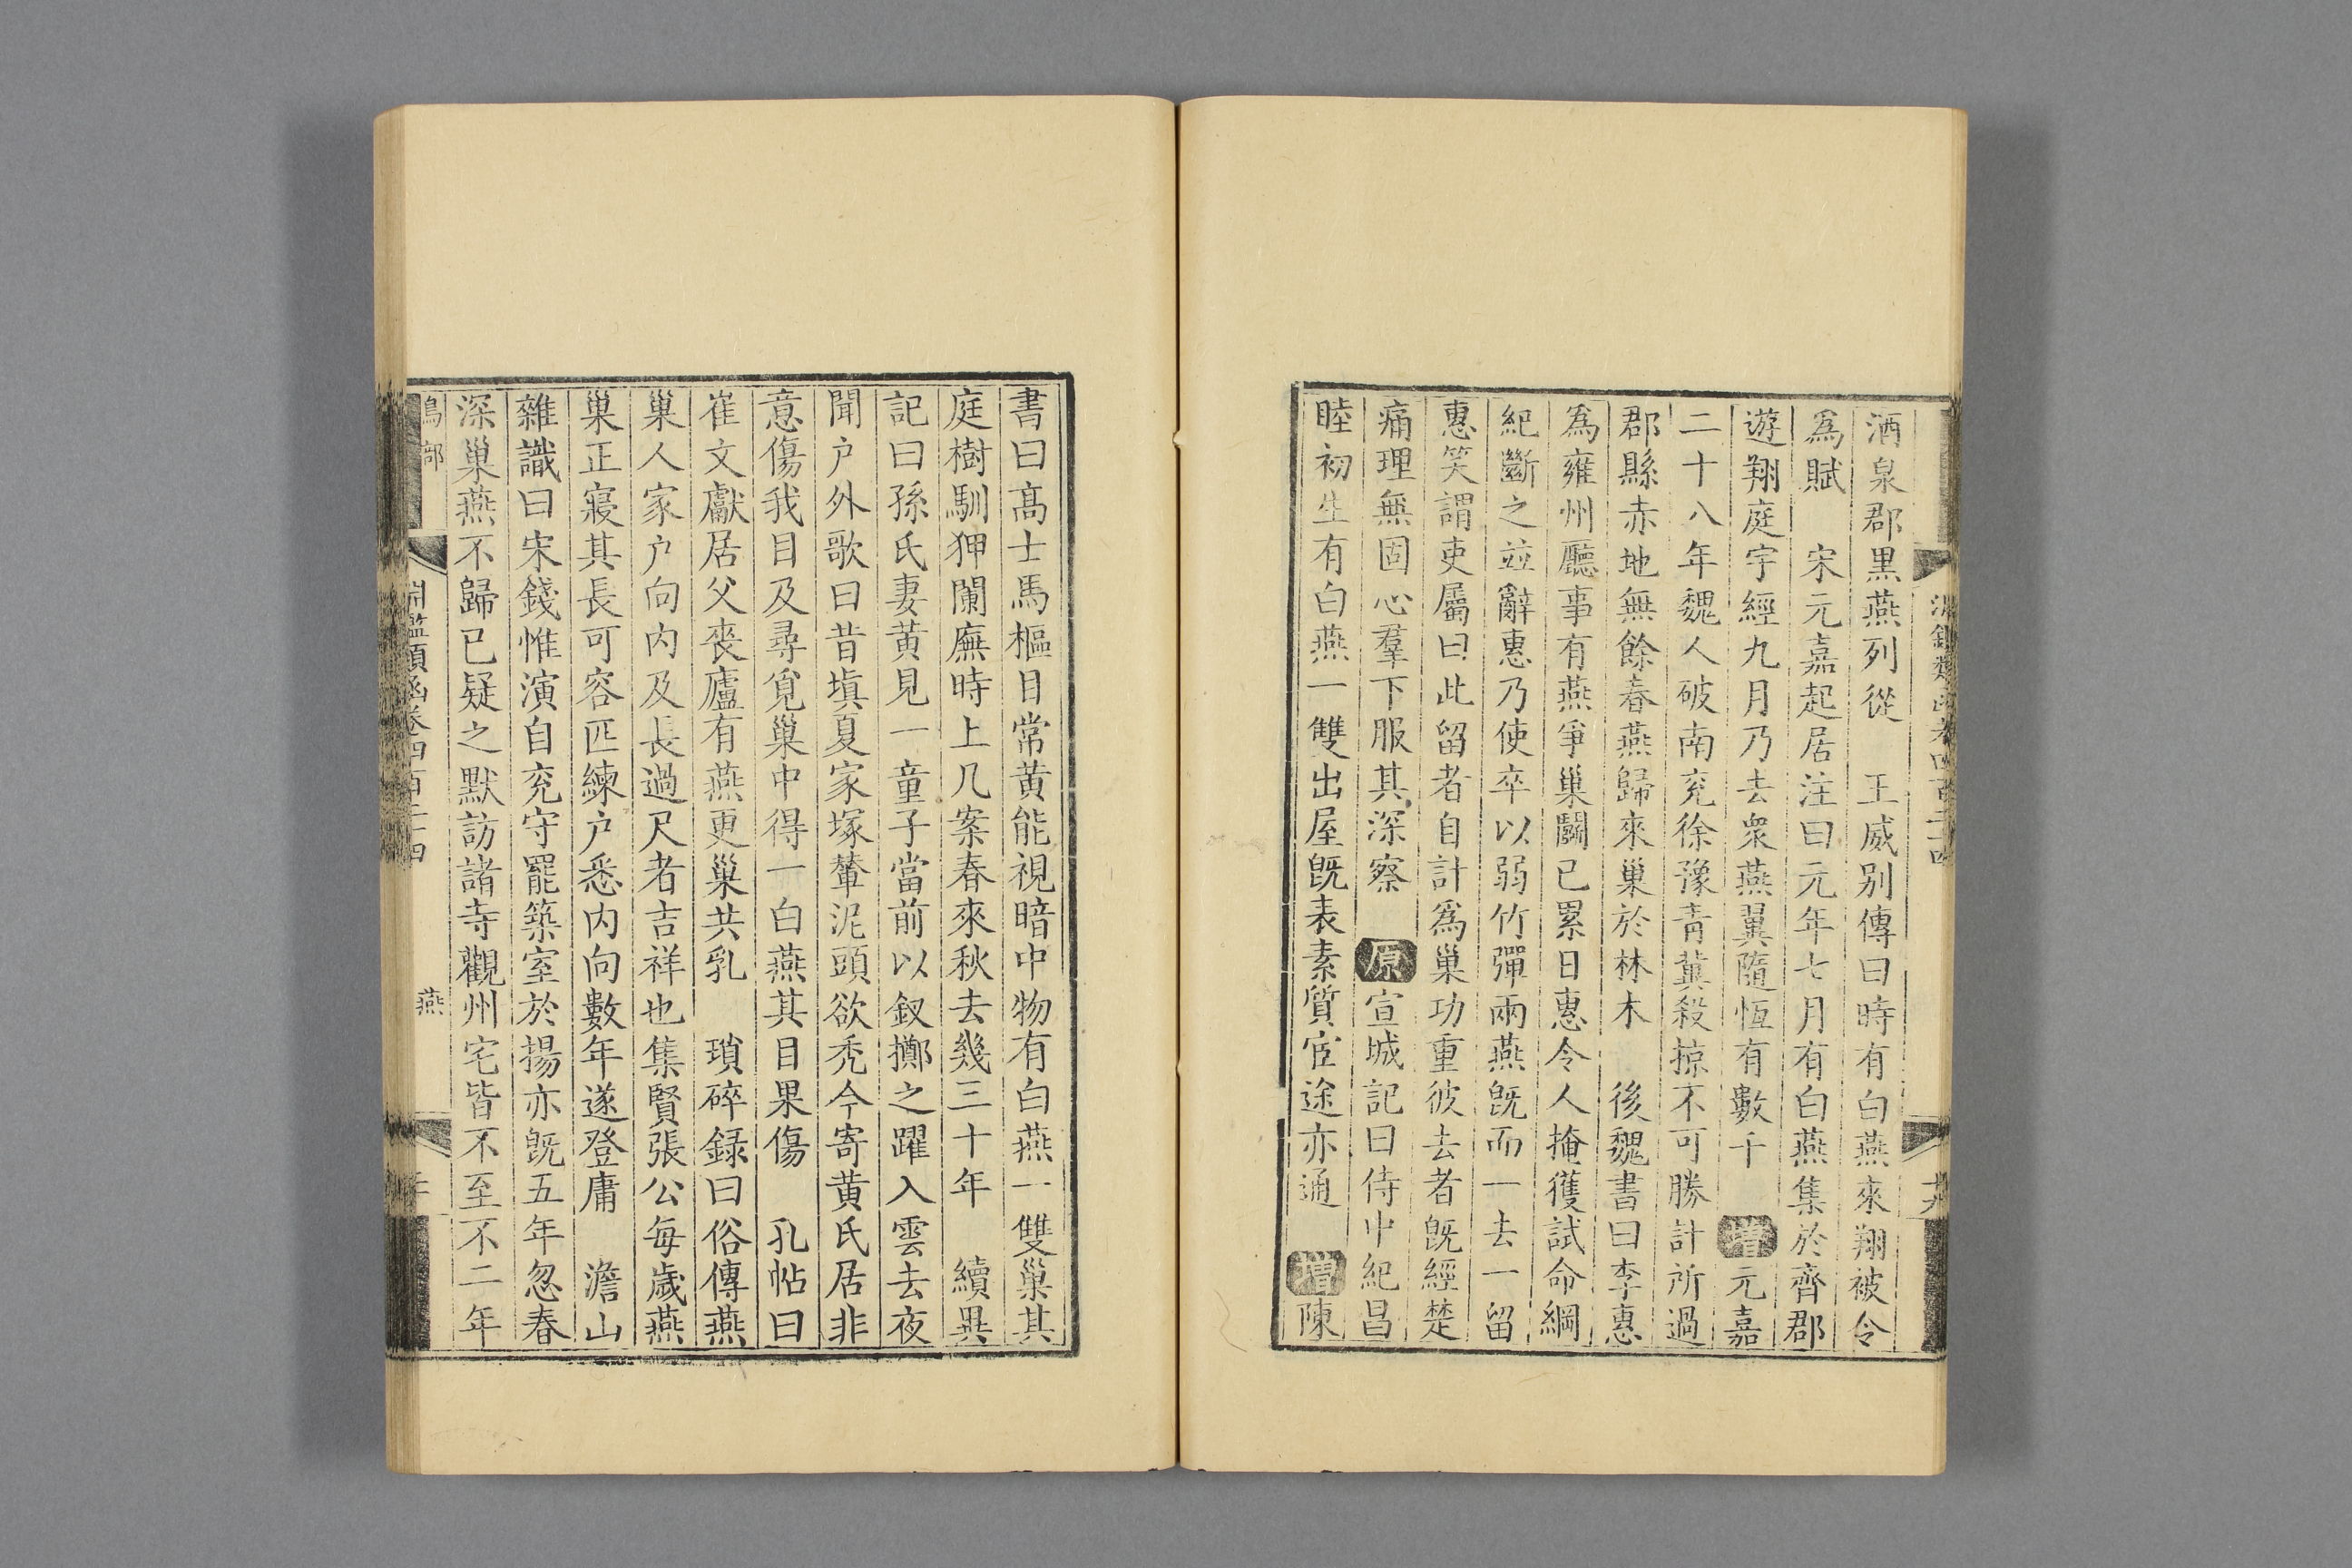 酒泉郡黑燕列從　王威别傳曰時有白燕來翔被令
爲賦　宋元嘉起居注曰元年七月有白燕集於齊郡
遊翔庭宇經九月乃去衆燕翼隨恆有數千　增元嘉
二十八年魏人破南兖徐豫青冀殺掠不可勝計所過
郡縣赤地無餘春燕歸來巢於林木　後魏書曰李惠
爲雍州廳事有燕爭巢鬭已累日惠令人掩獲試命綱
紀斷之並辭惠乃使卒以弱竹彈兩燕旣而一去一留
惠笑謂吏屬曰此留者自計爲巢功重彼去者旣經楚
痛理無固心羣下服其深察　原宣城記曰侍中紀昌
睦初生有白燕一雙出屋旣表素質宦途亦通　增陳
書曰髙士馬樞目常黄能視暗中物有白燕一雙巢其
庭樹馴狎闌廡時上几案春來秋去幾三十年　續異
記曰孫氏妻黄見一童子當前以釵擲之躍入雲去夜
聞户外歌曰昔塡夏家塚輦泥頭欲秃今寄黄氏居非
意傷我目及尋覓巢中得一白燕其目果傷　孔帖曰
崔文獻居父喪廬有燕更巢共乳　瑣碎録曰俗傳燕
巢人家户向内及長過尺者吉祥也集賢張公每歲燕
巢正寢其長可容匹練户悉内向數年遂登庸　澹山
雜識曰宋錢惟演自兖守罷築室於揚亦旣五年忽春
深巢燕不歸已疑之默訪諸寺觀州宅皆不至不二年
鳥部
淵鑑類函卷四百二十四
燕